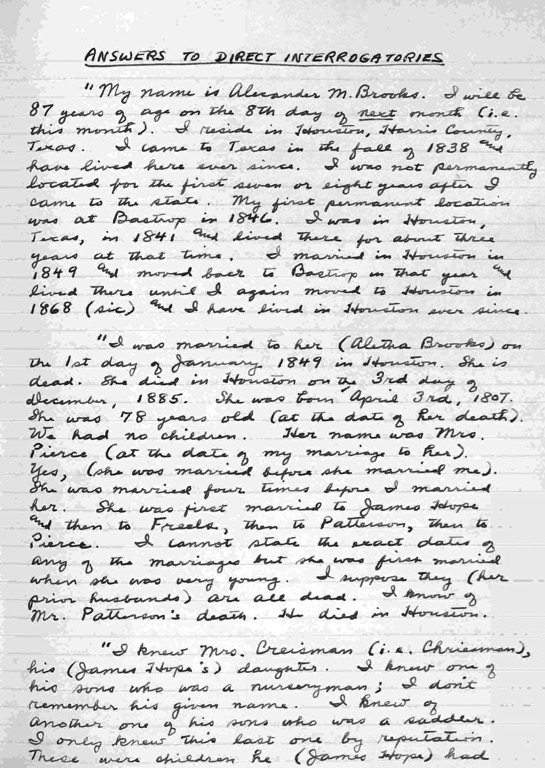 ANSWERS TO DIRECT INTERROGATORIES
"My name is Alexander M. Brooks. I will be
87 years of age on the 8th day of next month (i.e.
this month). I reside in Houston, Harris County,
Texas. I came to Texas in the fall of 1838 and
have lived here ever since. I was not permanently
located for the first seven or eight years after I
came to the state. My first permanent location
was at Bastrop in 1846. I was in Houston,
Texas, in 1841 and lived there for about three
years at that time. I married in Houston in
1849 and moved back to Bastrop in that year and
lived there until I again moved to Houston in
1868 (sic) and I have lived in Houston ever since.
"I was married to her (Aletha Brooks) on
the 1st day of January 1849 in Houston. She is
dead. She died in Houston on the 3rd day of
December, 1885. She was born April 3rd, 1807.
She was 78 years old (at the date of her death).
We had no children. Her name was Mrs.
Pierce (at the date of my marriage to her).
Yes, (she was married before she married me).
She was married four times before I married
her. She was first married to James Hope
and then to Freels, then to Patterson, then to
Pierce. I cannot state the exact dates of
any of the marriages but she was first married
when she was very young. I suppose they (her
prior husbands) are all dead. I know of
Mr. Patterson's death. He died in Houston.
"I knew Mrs. Creisman (i.e. Chriesman),
his (James Hope's) daughter. I knew one of
his sons who was a nurseryman; I don't
remember his given name. I knew of
another one of his sons who was a saddler.
I only knew this last one by reputation.
These were children he (James Hope) had